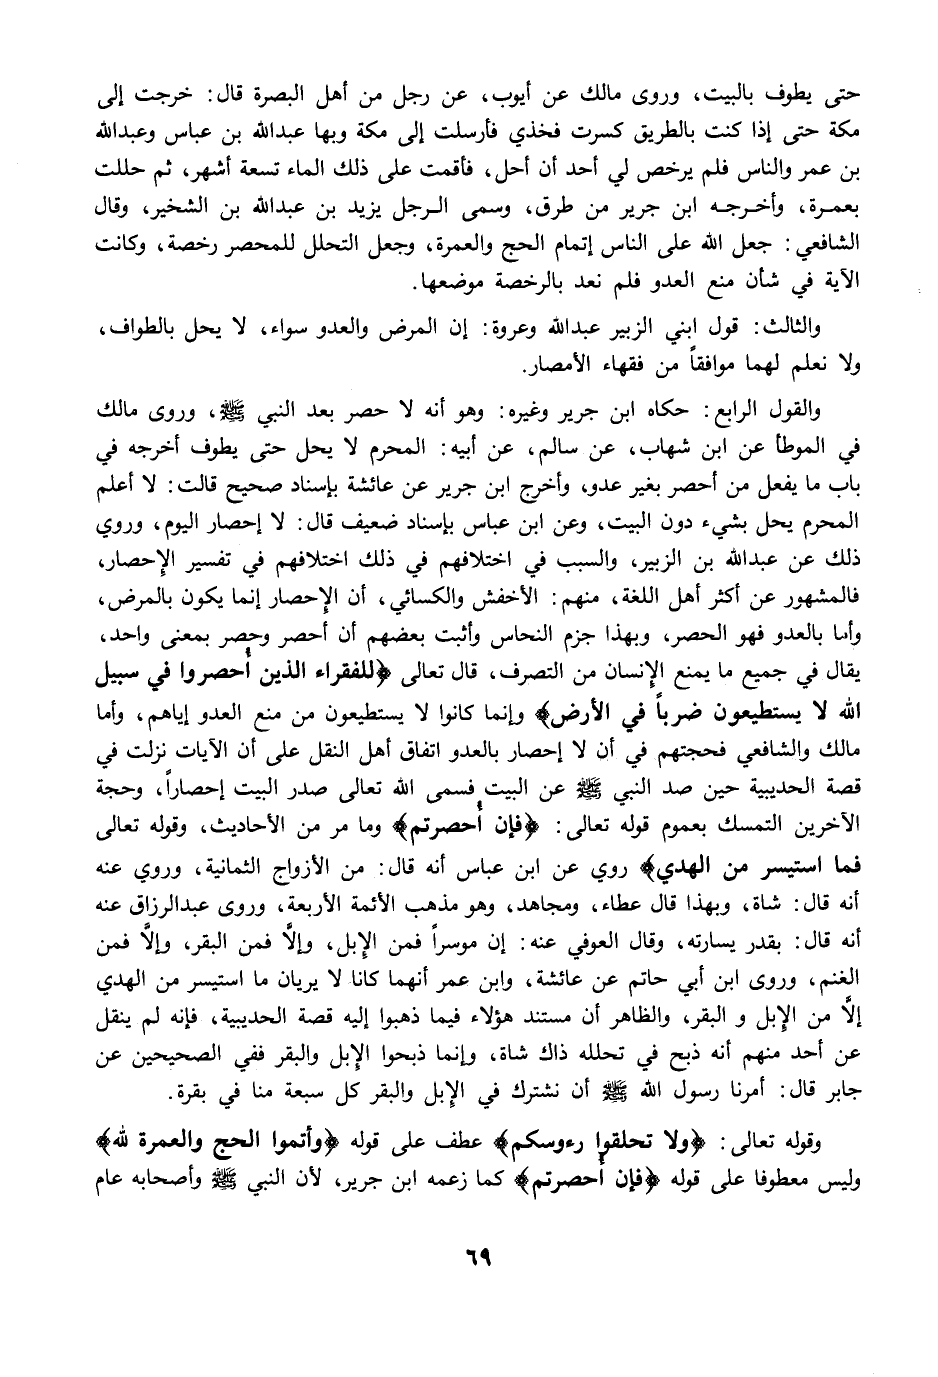 حتى يطوف بالبيت، وروى مالك عن أيوب، عن رجل من أهل البصرة قال: خرجت إلى
مكة حتى إذا كنت بالطريق كسرت فخذي فأرسلت إلى مكة وبها عبدالله بن عباس وعبدالله
بن عمر والناس فلم يرخص لي أحد أن أحل، فأقمت على ذلك الماء تسعة أشهر، ثم حللت
بعمـرة، وأخـرجـه ابن جرير من طرق، وسمى الـرجل يزيد بن عبدالله بن الشخير، وقال
الشافعي: جعل الله على الناس إتمام الحج والعمرة، وجعل التحلل للمحصر رخصة، وكانت
الآية في شأن منع العدو فلم نعد بالرخصة موضعها.
والثالث: قول ابني الزبير عبدالله وعروة: إن المرض والعدو سواء، لا يحل بالطواف،
ولا نعلم لهما موافقاً من فقهاء الأمصار.
والقول الرابع: حكاه ابن جرير وغيره: وهو أنه لا حصر بعد النبي ﷺ، وروى مالك
في الموطأ عن ابن شهاب، عن سالم، عن أبيه: المحرم لا يحل حتى يطوف أخرجه في
باب ما يفعل من أحصر بغير عدو، وأخرج ابن جرير عن عائشة بإسناد صحيح قالت: لا أعلم
المحرم يحل بشيء دون البيت، وعن ابن عباس بإسناد ضعيف قال: لا إحصار اليوم، وروي
ذلك عن عبدالله بن الزبير، والسبب في اختلافهم في ذلك اختلافهم في تفسير الإحصار،
فالمشهور عن أكثر أهل اللغة، منهم: الأخفش والكسائي، أن الإحصار إنما يكون بالمرض،
وأما بالعدو فهو الحصر، وبهذا جزم النحاس وأثبت بعضهم أن أحصر وحصر بمعنى واحد،
يقال في جميع ما يمنع الإنسان من التصرف، قال تعالى ﴿للفقراء الذين أُحصروا في سبيل
الله لا يستطيعون ضرباً في الأرض﴾ وإنما كانوا لا يستطيعون من منع العدو إياهم، وأما
مالك والشافعي فحجتهم في أن لا إحصار بالعدو اتفاق أهل النقل على أن الآيات نزلت في
قصة الحديبية حين صد النبي ﷺ عن البيت فسمى الله تعالى صدر البيت إحصاراً، وحجة
الآخرين التمسك بعموم قوله تعالى: ﴿فإن أُحصرتم﴾ وما مر من الأحاديث، وقوله تعالى
فما استيسر من الهدي﴾ روي عن ابن عباس أنه قال: من الأزواج الثمانية، وروي عنه
أنه قال: شاة، وبهذا قال عطاء، ومجاهد، وهو مذهب الأئمة الأربعة، وروى عبدالرزاق عنه
أنه قال: بقدر يسارته، وقال العوفي عنه: إن موسراً فمن الإبل، وإلاَّ فمن البقر، وإلاَّ فمن
الغنم، وروى ابن أبي حاتم عن عائشة، وابن عمر أنهما كانا لا يريان ما استيسر من الهدي
إلاَّ من الإبل و البقر، والظاهر أن مستند هؤلاء فيما ذهبوا إليه قصة الحديبية، فإنه لم ينقل
عن أحد منهم أنه ذبح في تحلله ذاك شاة، وإنما ذبحوا الإبل والبقر ففي الصحيحين عن
جابر قال: أمرنا رسول الله ﷺ أن نشترك في الإبل والبقر كل سبعة منا في بقرة.
وقوله تعالى: ﴿ولا تحلقوا رءوسكم﴾ عطف على قوله ﴿وأتموا الحج والعمرة لله﴾
وليس معطوفا على قوله ﴿فإن أُحصرتم﴾ كما زعمه ابن جرير، لأن النبي ﷺ وأصحابه عام
٦٩